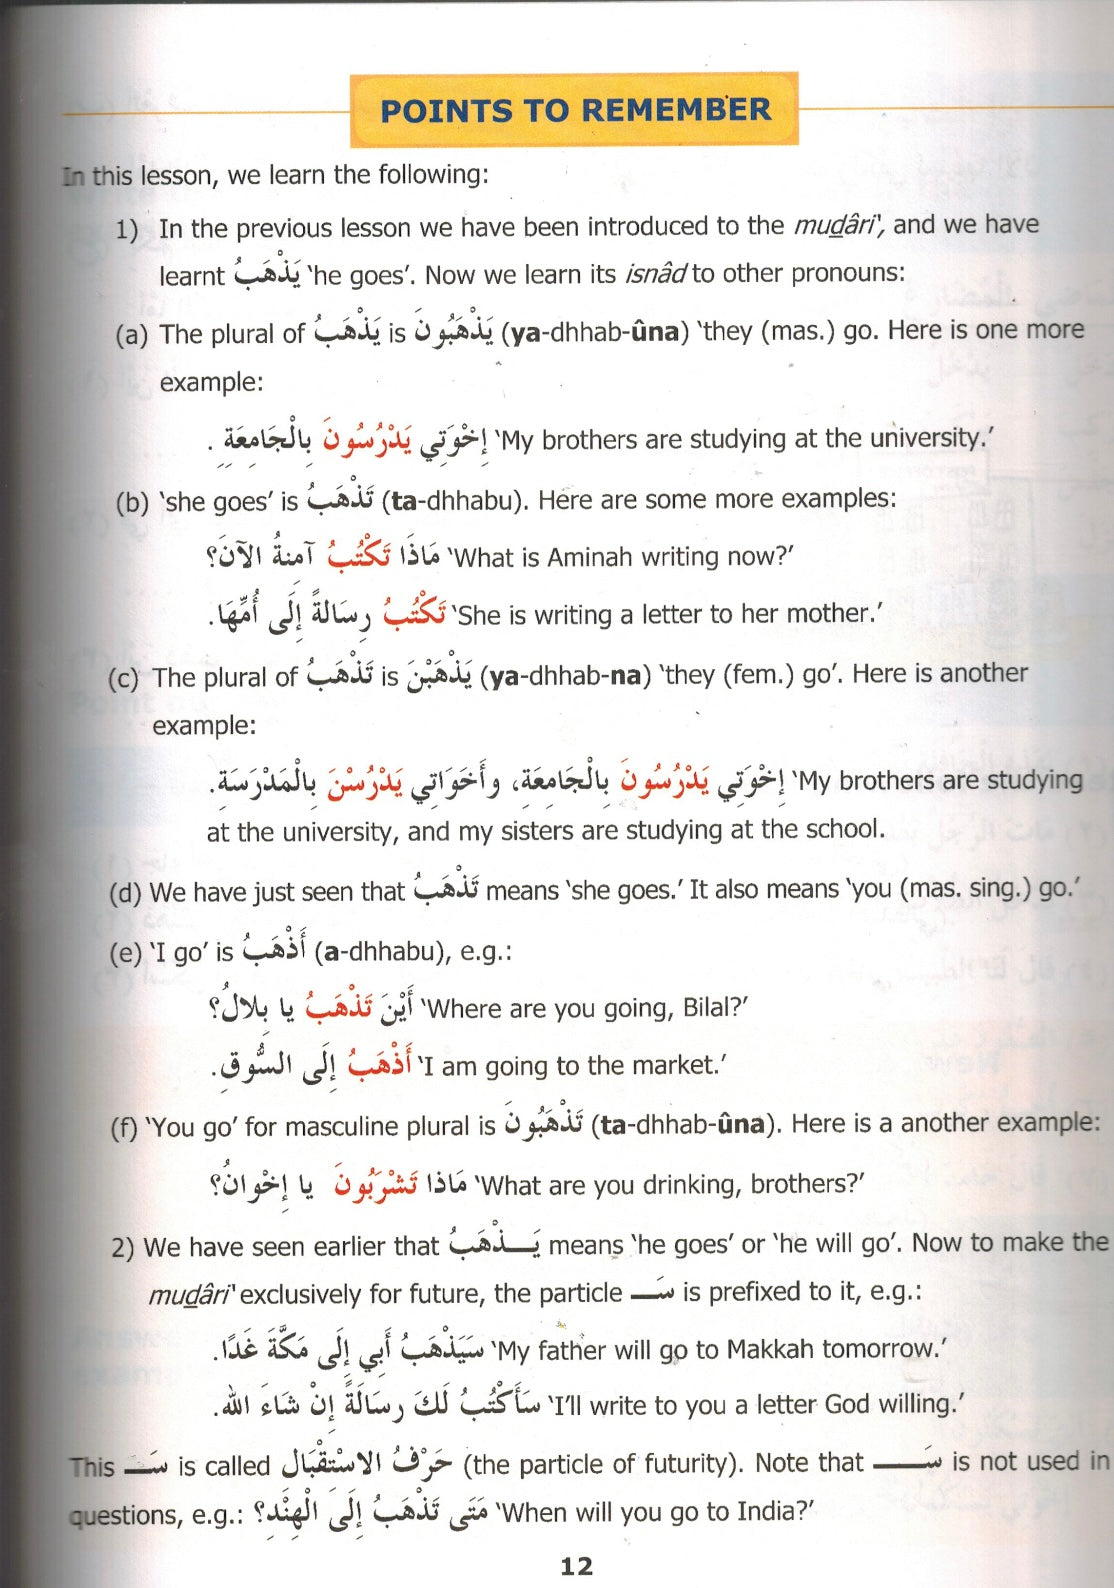 POINTS TO REMEMBER
In this lesson, we learn the following:
1) In the previous lesson we have been introduced to the mudâri', and we have
learnt يَذْهَبُ 'he goes'. Now we learn its isnâd to other pronouns:
(a) The plural of يَذْهَبُ is يَذْهَبُونَ (ya-dhhab-ûna) 'they (mas.) go. Here is one more
example:
إِخْوَتِي يَدْرُسُونَ بِالْجَامِعَةِ . 'My brothers are studying at the university.'
(b) 'she goes' is تَذْهَبُ (ta-dhhabu). Here are some more examples:
مَاذَا تَكْتُبُ آمنةُ الآنَ؟ 'What is Aminah writing now?'
تَكْتُبُ رِسَالةً إِلَى أُمِّهَا. 'She is writing a letter to her mother.'
(c) The plural of تَذْهَبُ is يَذْهَبْنَ (ya-dhhab-na) 'they (fem.) go'. Here is another
example:
إِخْوَتِي يَدْرُسُونَ بِالْجَامِعَةِ، وأَخَوَاتِي يَدْرُسْنَ بِالْمَدْرَسَةِ. 'My brothers are studying
at the university, and my sisters are studying at the school.
(d) We have just seen that تَذْهَبُ means 'she goes.' It also means 'you (mas. sing.) go.'
(e) 'I go' is أَذْهَبُ (a-dhhabu), e.g.:
أَيْنَ تَذْهَبُ يا بِلالُ؟ 'Where are you going, Bilal?'
أَذْهَبُ إِلَى السُّوقِ. 'I am going to the market.'
(f) 'You go' for masculine plural is تَذْهَبُونَ (ta-dhhab-ûna). Here is a another example:
مَاذا تَشْرَبُونَ يا إِخْوانُ؟ 'What are you drinking, brothers?'
2) We have seen earlier that يَـــذْهَبُ means 'he goes' or 'he will go'. Now to make the
mudâri' exclusively for future, the particle سَــ is prefixed to it, e.g.:
سَيَذْهَبُ أَبي إِلَى مَكَّةَ غَدًا. 'My father will go to Makkah tomorrow.'
سَأَكْتُبُ لَكَ رِسَالَةً إِنْ شَاءَ اللهُ. 'I'll write to you a letter God willing.'
This سَــ is called حَرْفُ الاسْتِقْبَالِ (the particle of futurity). Note that سَـــ is not used in
questions, e.g.: مَتَى تَذْهَبُ إِلَى الْهِنْدِ؟ 'When will you go to India?'
12